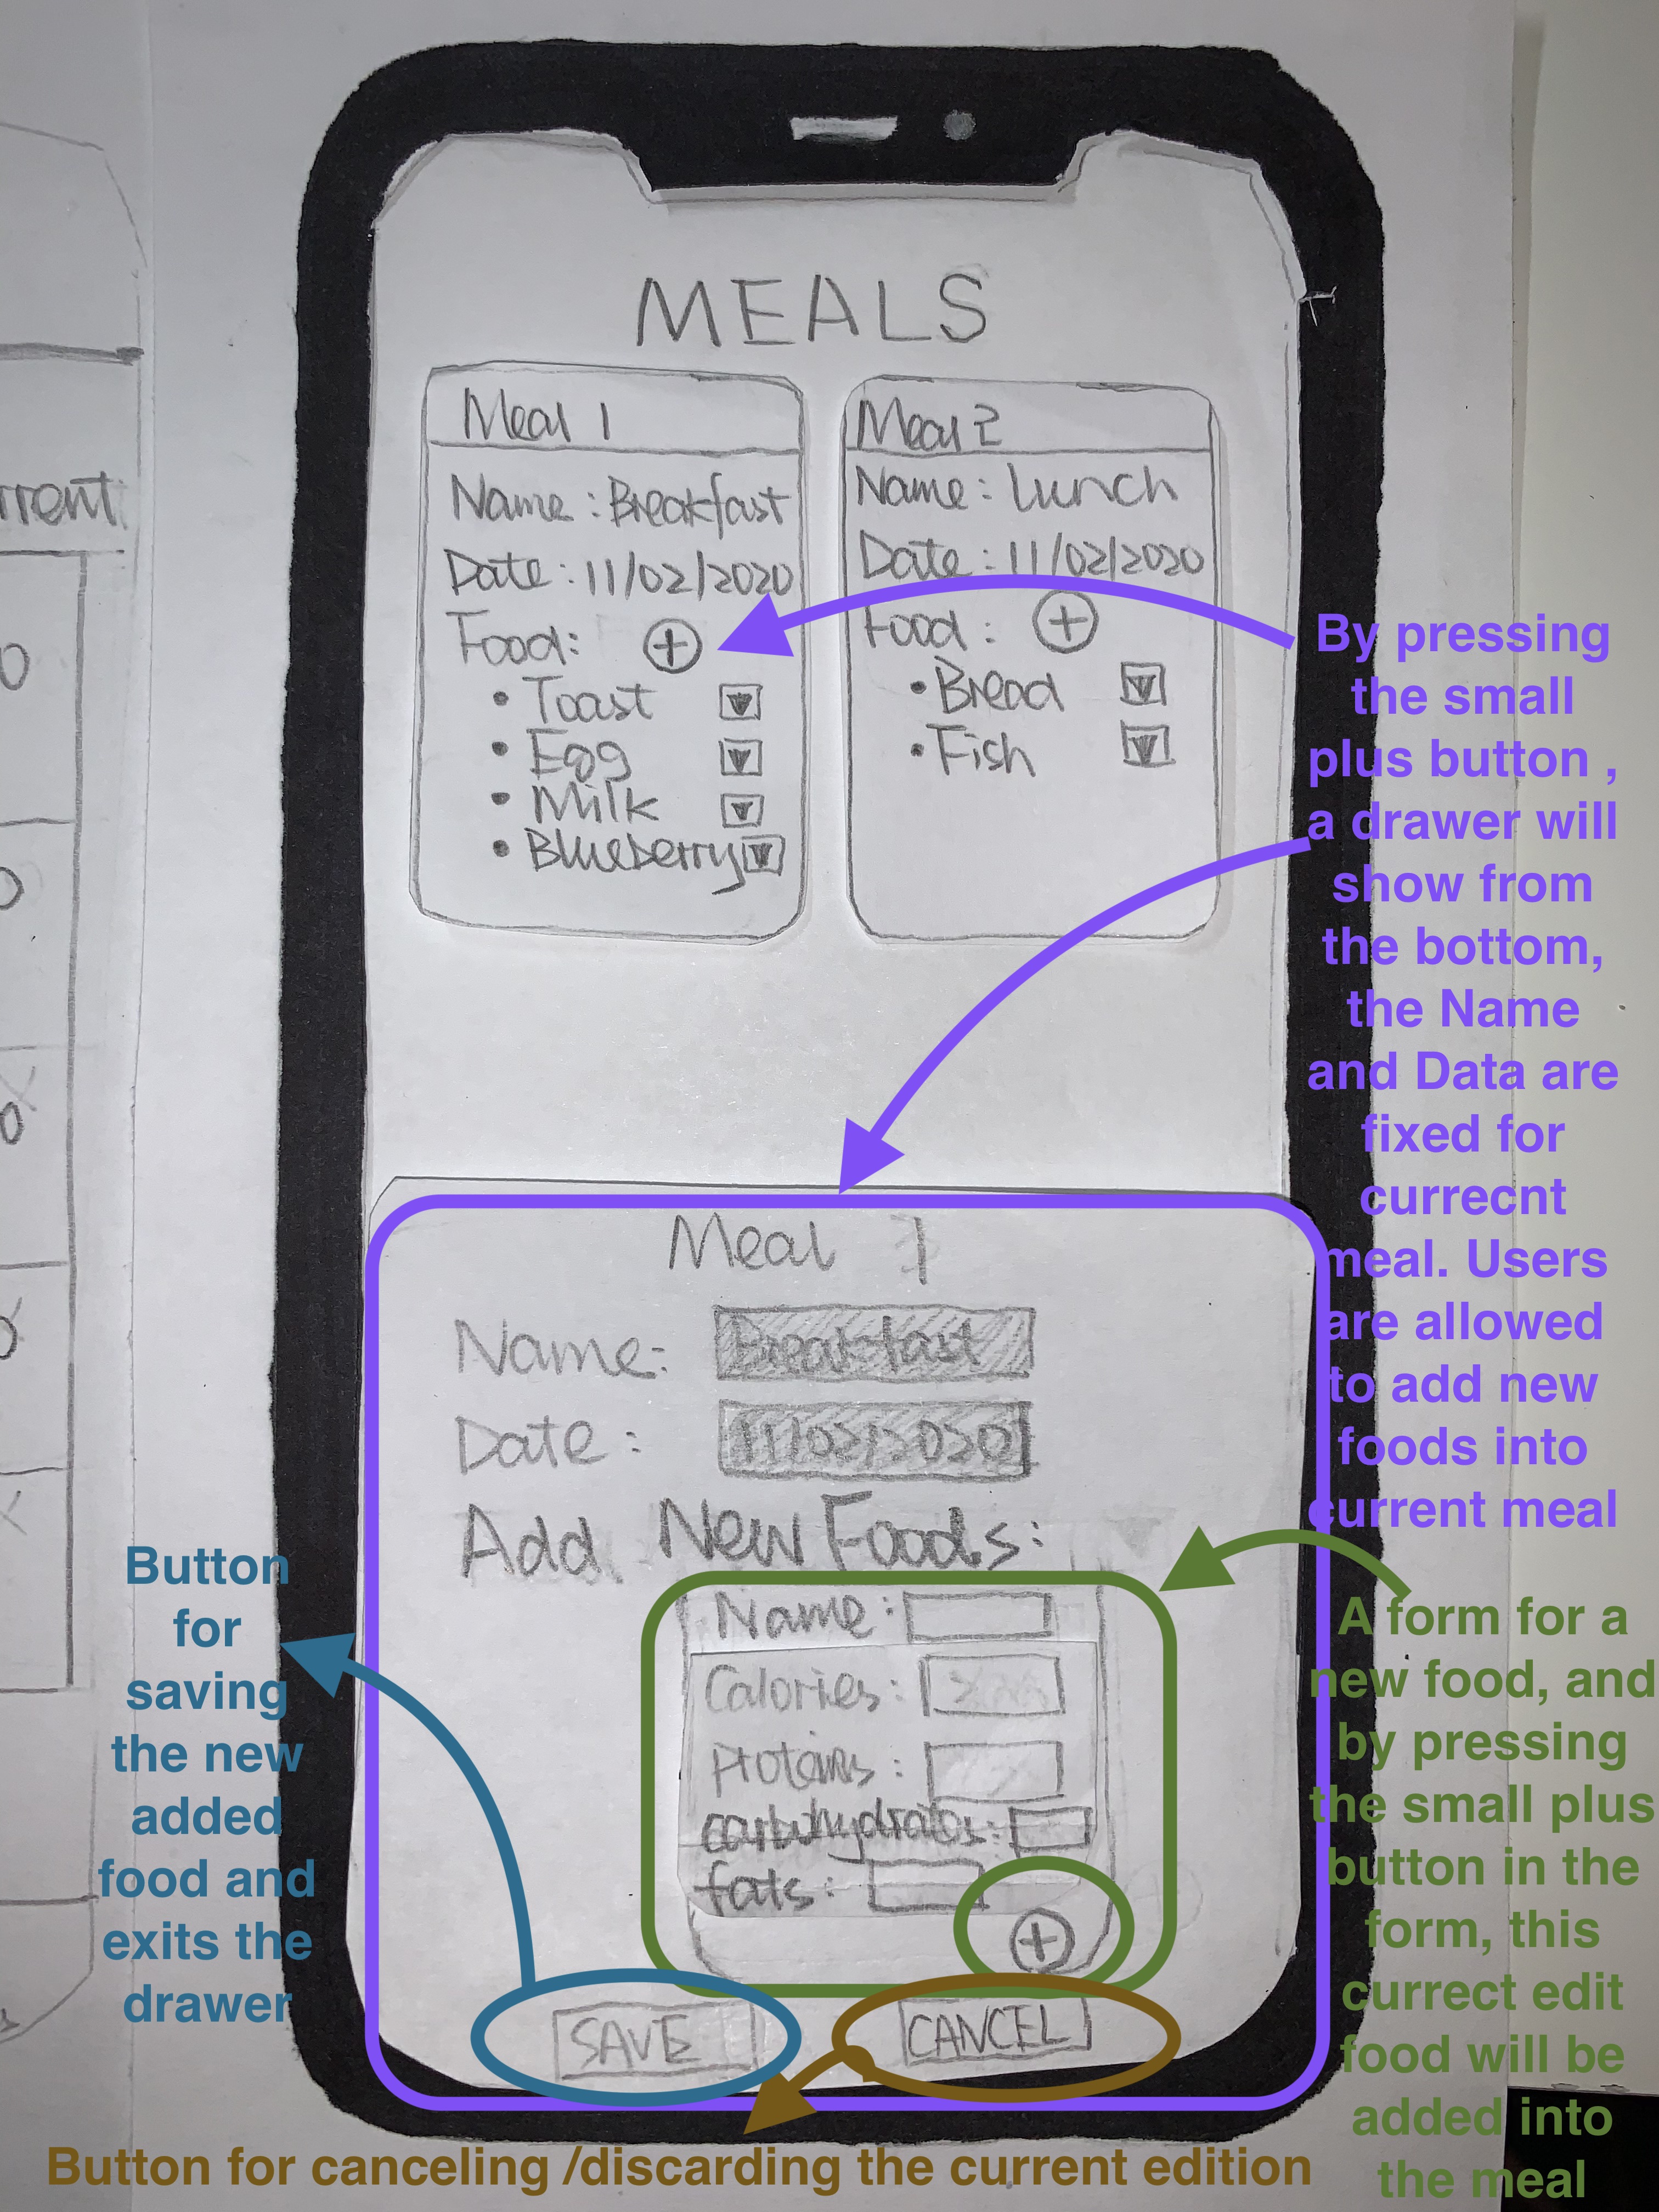 MEALS
Meal 1
Name : Breakfast
Date : 11/02/2020
Food:
• Toast
• Egg
• Milk
• Blueberry
Meal 2
Name : Lunch
Date : 11/02/2020
Food :
• Bread
• Fish
By pressing
the small
plus button ,
a drawer will
show from
the bottom,
the Name
and Data are
fixed for
currecnt
meal. Users
are allowed
to add new
foods into
current meal
Meal 1
Name:
Breakfast
Date :
11/02/2020
Add New Foods:
Name:
Calories:
Proteins :
carbohydrates:
fats:
SAVE
CANCEL
Button
for
saving
the new
added
food and
exits the
drawer
A form for a
new food, and
by pressing
the small plus
button in the
form, this
currect edit
food will be
added into
the meal
Button for canceling /discarding the current edition